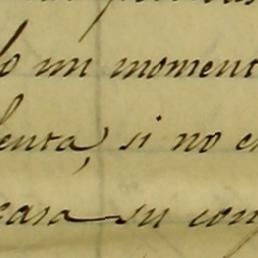 lo un moment
enta, si no e
casa su con